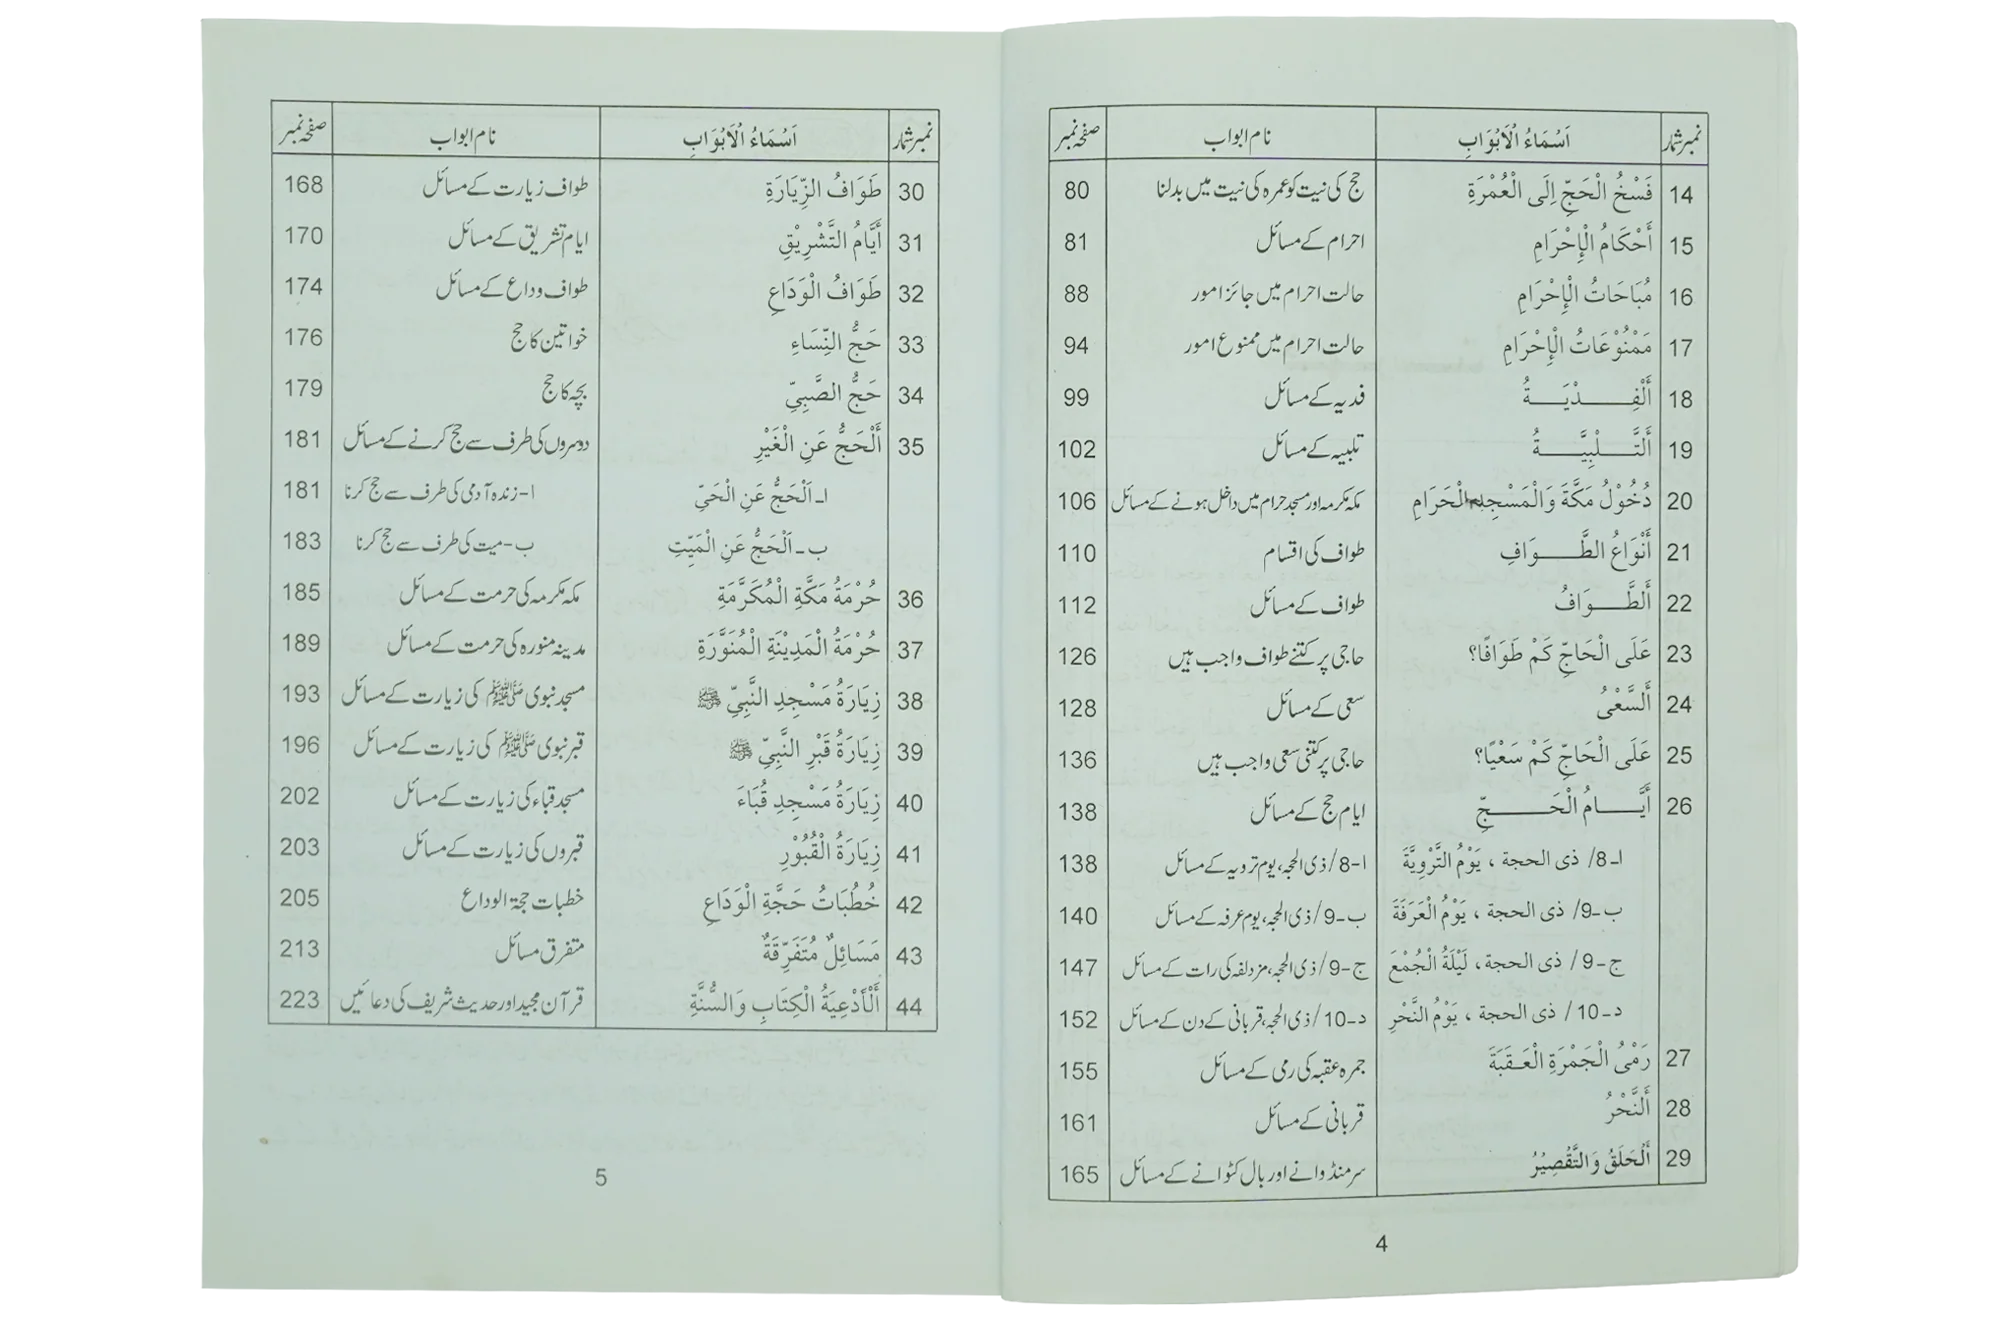 نمبر شمار اَسْمَاءُ الْاَبْوَابِ نام ابواب صفحہ نمبر
14 فَسْخُ الْحَجِّ اِلَى الْعُمْرَةِ حج کی نیت کو عمرہ کی نیت میں بدلنا 80
15 أَحْكَامُ الْإِحْرَامِ احرام کے مسائل 81
16 مُبَاحَاتُ الْإِحْرَامِ حالت احرام میں جائز امور 88
17 مَمْنُوْعَاتُ الْإِحْرَامِ حالت احرام میں ممنوع امور 94
18 أَلْفِــــدْيَــــةُ فدیہ کے مسائل 99
19 أَلتَّــــلْبِيَّــــةُ تلبیہ کے مسائل 102
20 دُخُوْلُ مَكَّةَ وَالْمَسْجِدِ الْحَرَامِ مکہ مکرمہ اور مسجد حرام میں داخل ہونے کے مسائل 106
21 أَنْوَاعُ الطَّــــوَافِ طواف کی اقسام 110
22 أَلطَّــــوَافُ طواف کے مسائل 112
23 عَلَى الْحَاجِّ كَمْ طَوَافًا؟ حاجی پر کتنے طواف واجب ہیں 126
24 أَلسَّعْىُ سعی کے مسائل 128
25 عَلَى الْحَاجِّ كَمْ سَعْيًا؟ حاجی پر کتنی سعی واجب ہیں 136
26 أَيَّــــامُ الْحَــــجِّ ایام حج کے مسائل 138
ا-8/ ذى الحجة ، يَوْمُ التَّرْوِيَّةَ ا-8/ذی الحجہ، یوم ترویہ کے مسائل 138
ب-9/ ذى الحجة ، يَوْمُ الْعَرَفَةَ ب-9/ذی الحجہ، یوم عرفہ کے مسائل 140
ج-9/ ذى الحجة، لَيْلَةُ الْجُمْعَ ج-9/ذی الحجہ، مزدلفہ کی رات کے مسائل 147
د-10/ ذى الحجة ، يَوْمُ النَّحْرِ د-10/ذی الحجہ، قربانی کے دن کے مسائل 152
27 رَمْىُ الْجَمْرَةِ الْعَقَبَةَ جمرہ عقبہ کی رمی کے مسائل 155
28 أَلنَّحْرُ قربانی کے مسائل 161
29 أَلْحَلَقُ وَالتَّقْصِيْرُ سر منڈوانے اور بال کٹوانے کے مسائل 165
4
نمبر شمار اَسْمَاءُ الْاَبْوَابِ نام ابواب صفحہ نمبر
30 طَوَافُ الزِّيَارَةِ طواف زیارت کے مسائل 168
31 أَيَّامُ التَّشْرِيْقِ ایام تشریق کے مسائل 170
32 طَوَافُ الْوَدَاعِ طواف وداع کے مسائل 174
33 حَجُّ النِّسَاءِ خواتین کا حج 176
34 حَجُّ الصَّبِيِّ بچہ کا حج 179
35 أَلْحَجُّ عَنِ الْغَيْرِ دوسروں کی طرف سے حج کرنے کے مسائل 181
ا- اَلْحَجُّ عَنِ الْحَيِّ ا-زندہ آدمی کی طرف سے حج کرنا 181
ب- اَلْحَجُّ عَنِ الْمَيِّتِ ب-میت کی طرف سے حج کرنا 183
36 حُرْمَةُ مَكَّةِ الْمُكَرَّمَةِ مکہ مکرمہ کی حرمت کے مسائل 185
37 حُرْمَةُ الْمَدِيْنَةِ الْمُنَوَّرَةِ مدینہ منورہ کی حرمت کے مسائل 189
38 زِيَارَةُ مَسْجِدِ النَّبِيِّ ﷺ مسجد نبوی ﷺ کی زیارت کے مسائل 193
39 زِيَارَةُ قَبْرِ النَّبِيِّ ﷺ قبر نبوی ﷺ کی زیارت کے مسائل 196
40 زِيَارَةُ مَسْجِدِ قُبَاءَ مسجد قباء کی زیارت کے مسائل 202
41 زِيَارَةُ الْقُبُوْرِ قبروں کی زیارت کے مسائل 203
42 خُطُبَاتُ حَجَّةِ الْوَدَاعِ خطبات حجۃ الوداع 205
43 مَسَائِلُ مُتَفَرِّقَةٌ متفرق مسائل 213
44 أَلْأَدْعِيَةُ الْكِتَابِ وَالسُّنَّةِ قرآن مجید اور حدیث شریف کی دعائیں 223
5